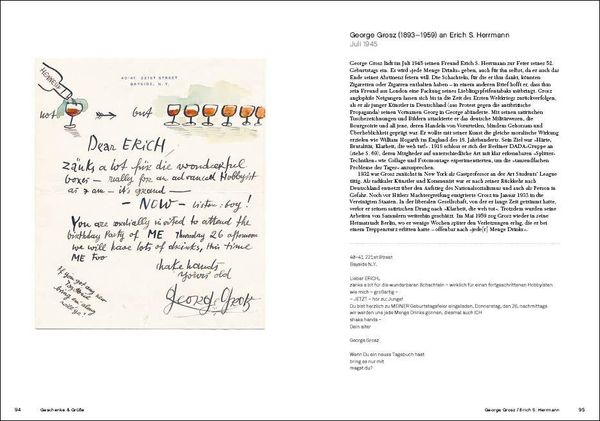 40-41 221ST STREET
BAYSIDE, N.Y.
HENNESSY
not
but
Dear ERICH,
zänks a lot für die wonderful
boxes — really for an advanced Hobbyist
as I am — it's grand —
— NOW — listen: boy!
You are cordially invited to attend the
birthday Party of ME Thursday 26 afternoon
we will have lots of drinks, this time
ME too
shake hands
yours old
George Grosz
If you got any new
bring em along
will ya?
94
Geschenke & Grüße
George Grosz (1893–1959) an Erich S. Herrmann
Juli 1945
George Grosz lädt im Juli 1945 seinen Freund Erich S. Herrmann zur Feier seines 52.
Geburtstags ein. Es wird »jede Menge Drinks« geben, auch für ihn selbst, da er auch das
Ende seiner Abstinenz feiern will. Die Schachteln, für die er ihm dankt, könnten
Zigaretten oder Zigarren enthalten haben – in einem anderen Brief hofft er, dass ihm
sein Freund aus London eine Packung seines Lieblingspfeifentabaks mitbringt. Grosz'
anglophile Neigungen lassen sich bis in die Zeit des Ersten Weltkriegs zurückverfolgen,
als er als junger Künstler in Deutschland (aus Protest gegen die antibritische
Propaganda) seinen Vornamen Georg in George abänderte. Mit seinen satirischen
Tuschezeichnungen und Bildern attackierte er das deutsche Militärwesen, die
Bourgeoisie und all jene, deren Handeln von Vorurteilen, blindem Gehorsam und
Überheblichkeit geprägt war. Er wollte mit seiner Kunst die gleiche moralische Wirkung
erzielen wie William Hogarth im England des 18. Jahrhunderts. Sein Ziel war »Härte,
Brutalität, Klarheit, die weh tut!«. 1918 schloss er sich der Berliner DADA-Gruppe an
(siehe S. 60), deren Mitglieder auf unterschiedliche Art mit klar erkennbaren »Splitter-
Techniken« wie Collage und Fotomontage experimentierten, um die »tausendfachen
Probleme der Tage« anzusprechen.
1932 war Grosz zunächst in New York als Gastprofessor an der Art Students' League
tätig. Als radikaler Künstler und Kommunist war er nach seiner Rückkehr nach
Deutschland entsetzt über den Aufstieg des Nationalsozialismus und auch als Person in
Gefahr. Noch vor Hitlers Machtergreifung emigrierte Grosz im Januar 1933 in die
Vereinigten Staaten. In der liberalen Gesellschaft, von der er lange Zeit geträumt hatte,
verlor er seinen satirischen Drang nach »Klarheit, die weh tut«. Trotzdem wurden seine
Arbeiten von Sammlern weiterhin geschätzt. Im Mai 1959 zog Grosz wieder in seine
Heimatstadt Berlin, wo er wenige Wochen später den Verletzungen erlag, die er bei
einem Treppensturz erlitten hatte – offenbar nach »jede[r] Menge Drinks«.
40-41 221st Street
Bayside N.Y.
Lieber ERICH,
zänks a lot für die wunderbaren Schachteln – wirklich für einen fortgeschrittenen Hobbyisten
wie mich – großartig –
– JETZT – hör zu: Junge!
Du bist herzlich zu MEINER Geburtstagsfeier eingeladen, Donnerstag, den 26., nachmittags
wir werden uns jede Menge Drinks gönnen, diesmal auch ICH
shake hands –
Dein alter
George Grosz
Wenn Du ein neues Tagebuch hast
bring es nur mit
magst du?
George Grosz / Erich S. Herrmann
95